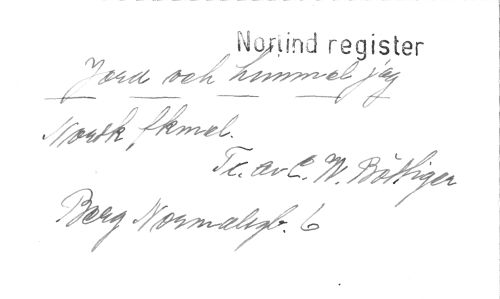 Norlind register
Jord och himmel jag
Norsk fkmel.
Tx. av C. W. Böttiger
Berg Normalsgb. 6